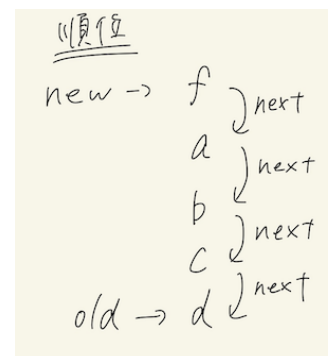 順位
new → f
next
a
next
b
next
c
next
old → d